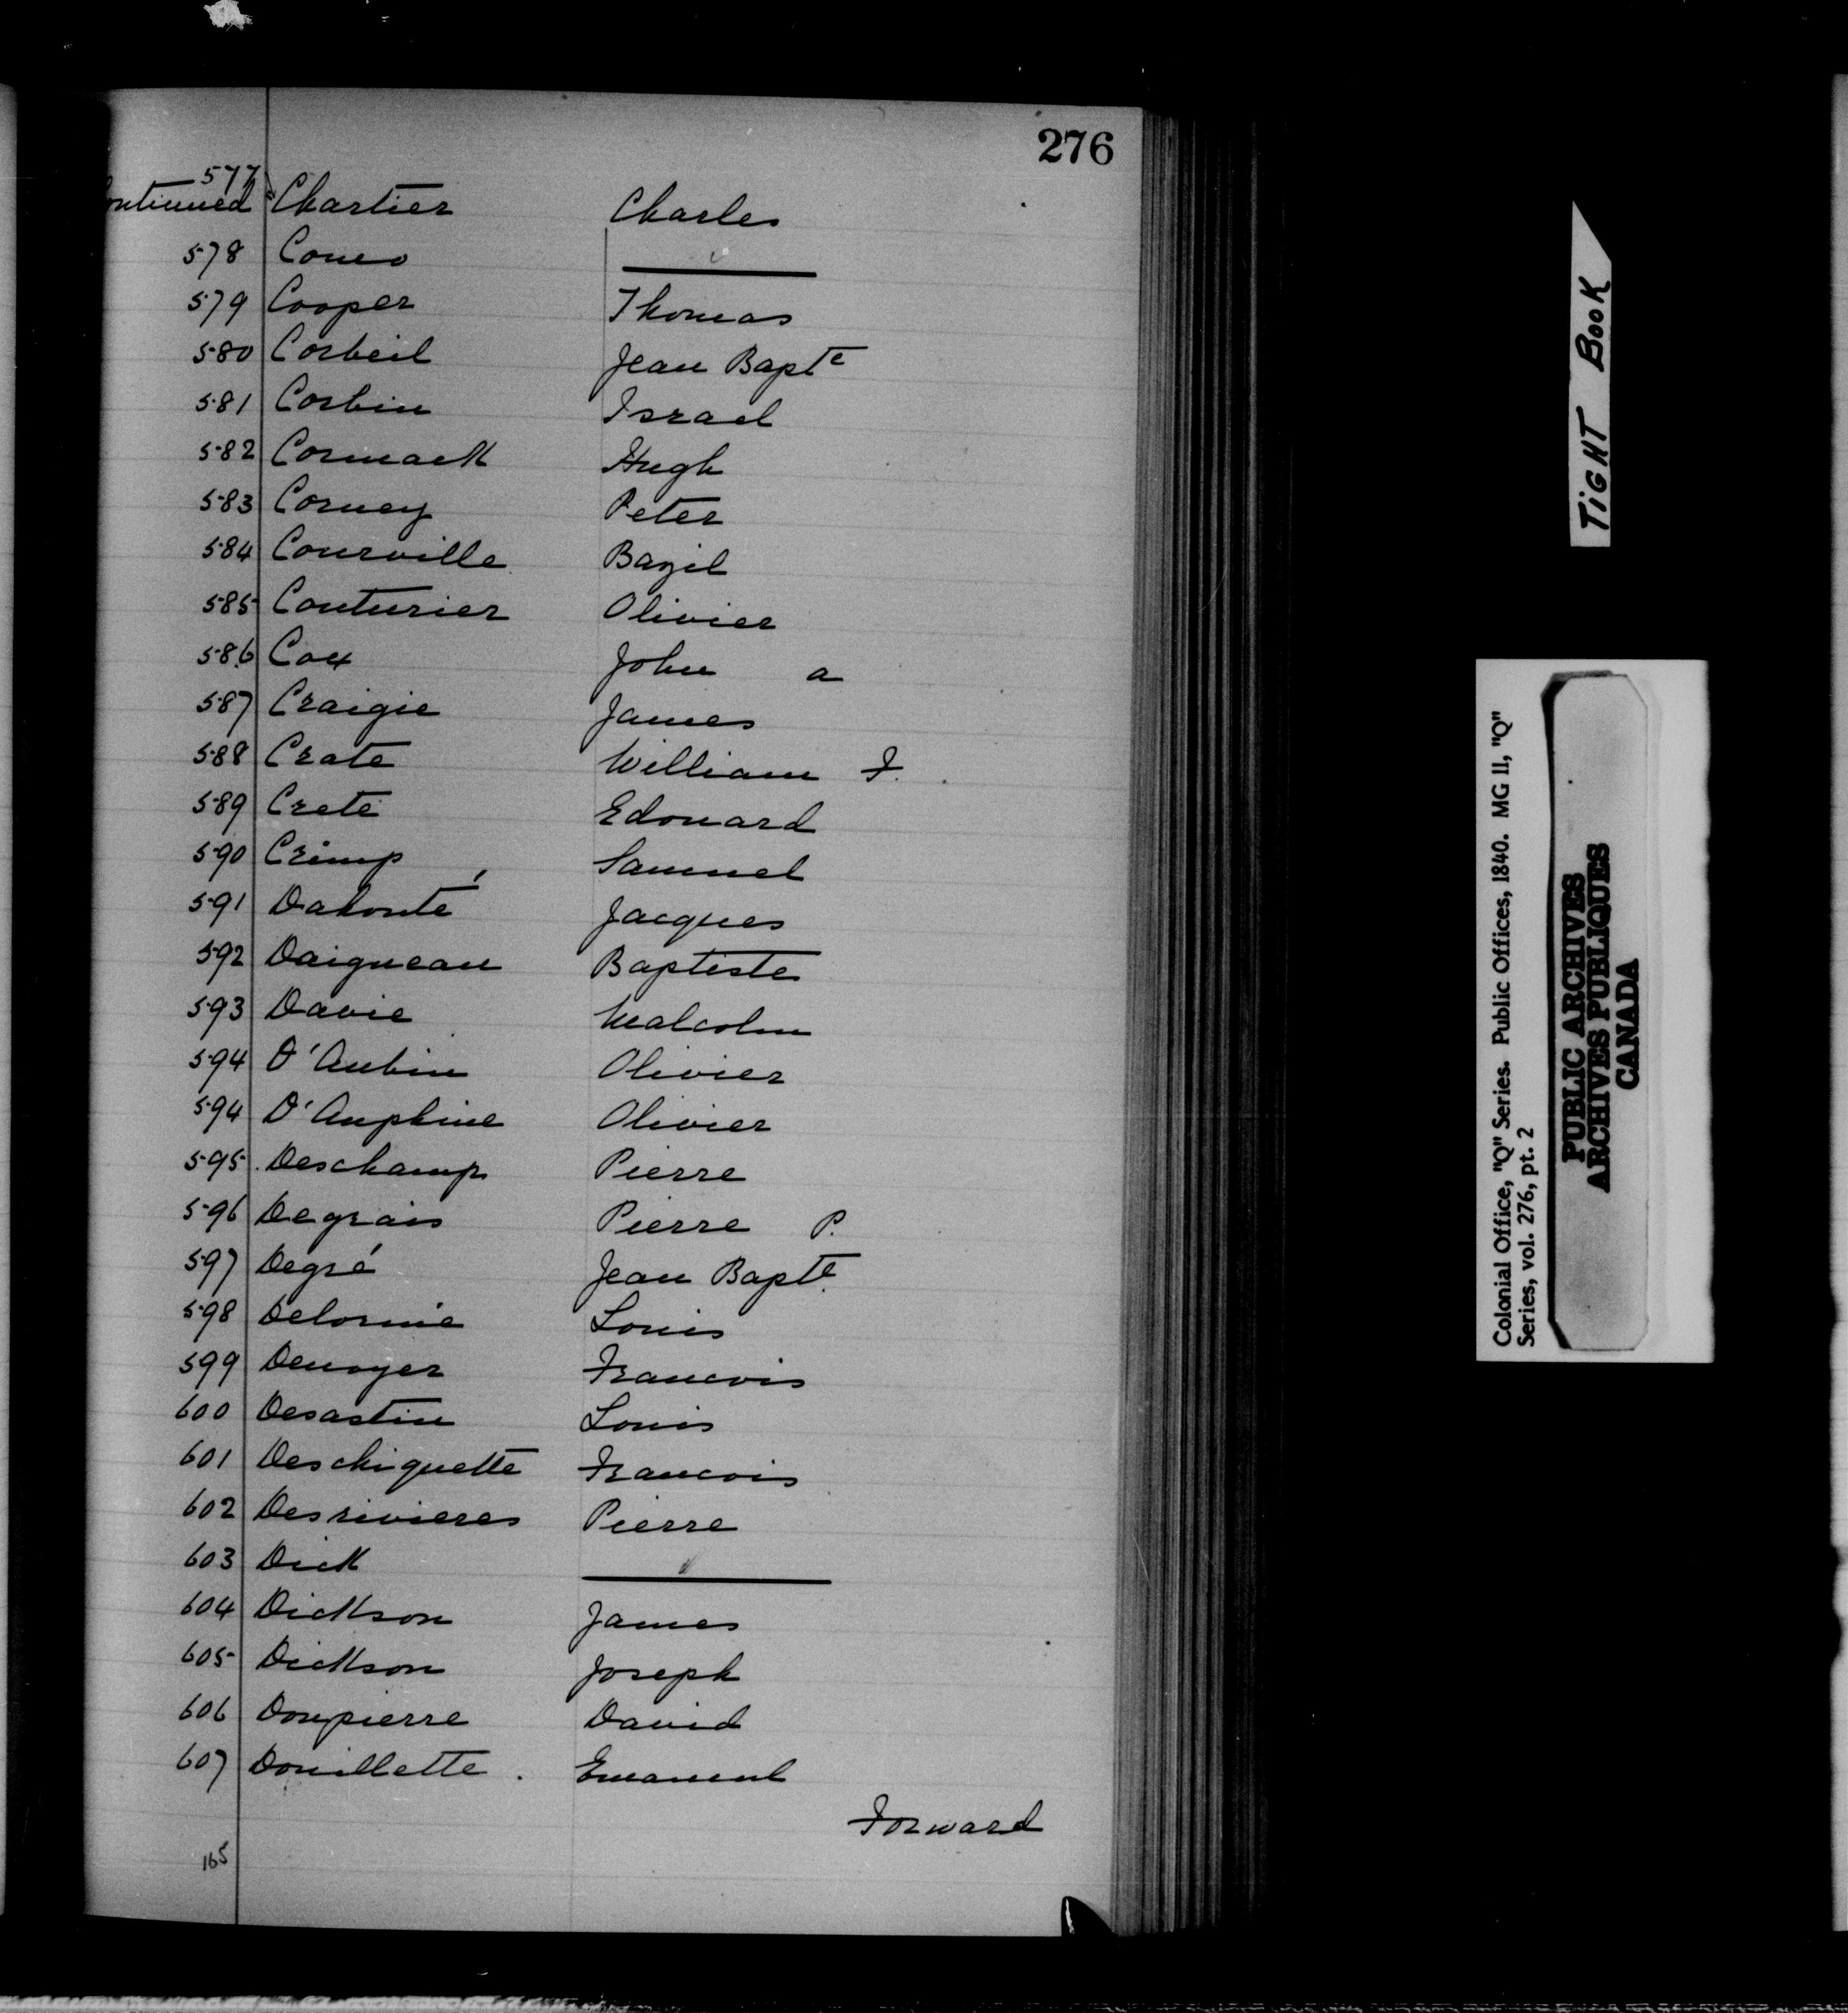 276
577
ontinued Chartier Charles
578 Comeo
579 Cooper Thomas
580 Corbeil Jean Bapte
581 Corbin Israel
582 Cormack Hugh
583 Corney Peter
584 Courville Bazil
585 Couturier Olivier
586 Cox John a
587 Craigie James
588 Crate William F.
589 Crete Edouard
590 Crimp Samuel
591 Dahonté Jacques
592 Daigneau Baptiste
593 Davie Malcolm
594 D'Aubin Olivier
594 D'Auphine Olivier
595 Deschamp Pierre
596 Degrais Pierre P.
597 Degré Jean Bapte
598 Delorme Louis
599 Denoyer Francois
600 Desastin Louis
601 Deschiquette Francois
602 Desrivieres Pierre
603 Dick
604 Dickson James
605 Dickson Joseph
606 Dompierre David
607 Douillette Emanuel
Forward
165
TIGHT BOOK
Colonial Office, "Q" Series. Public Offices, 1840. MG 11, "Q"
Series, vol. 276, pt. 2
PUBLIC ARCHIVES
ARCHIVES PUBLIQUES
CANADA